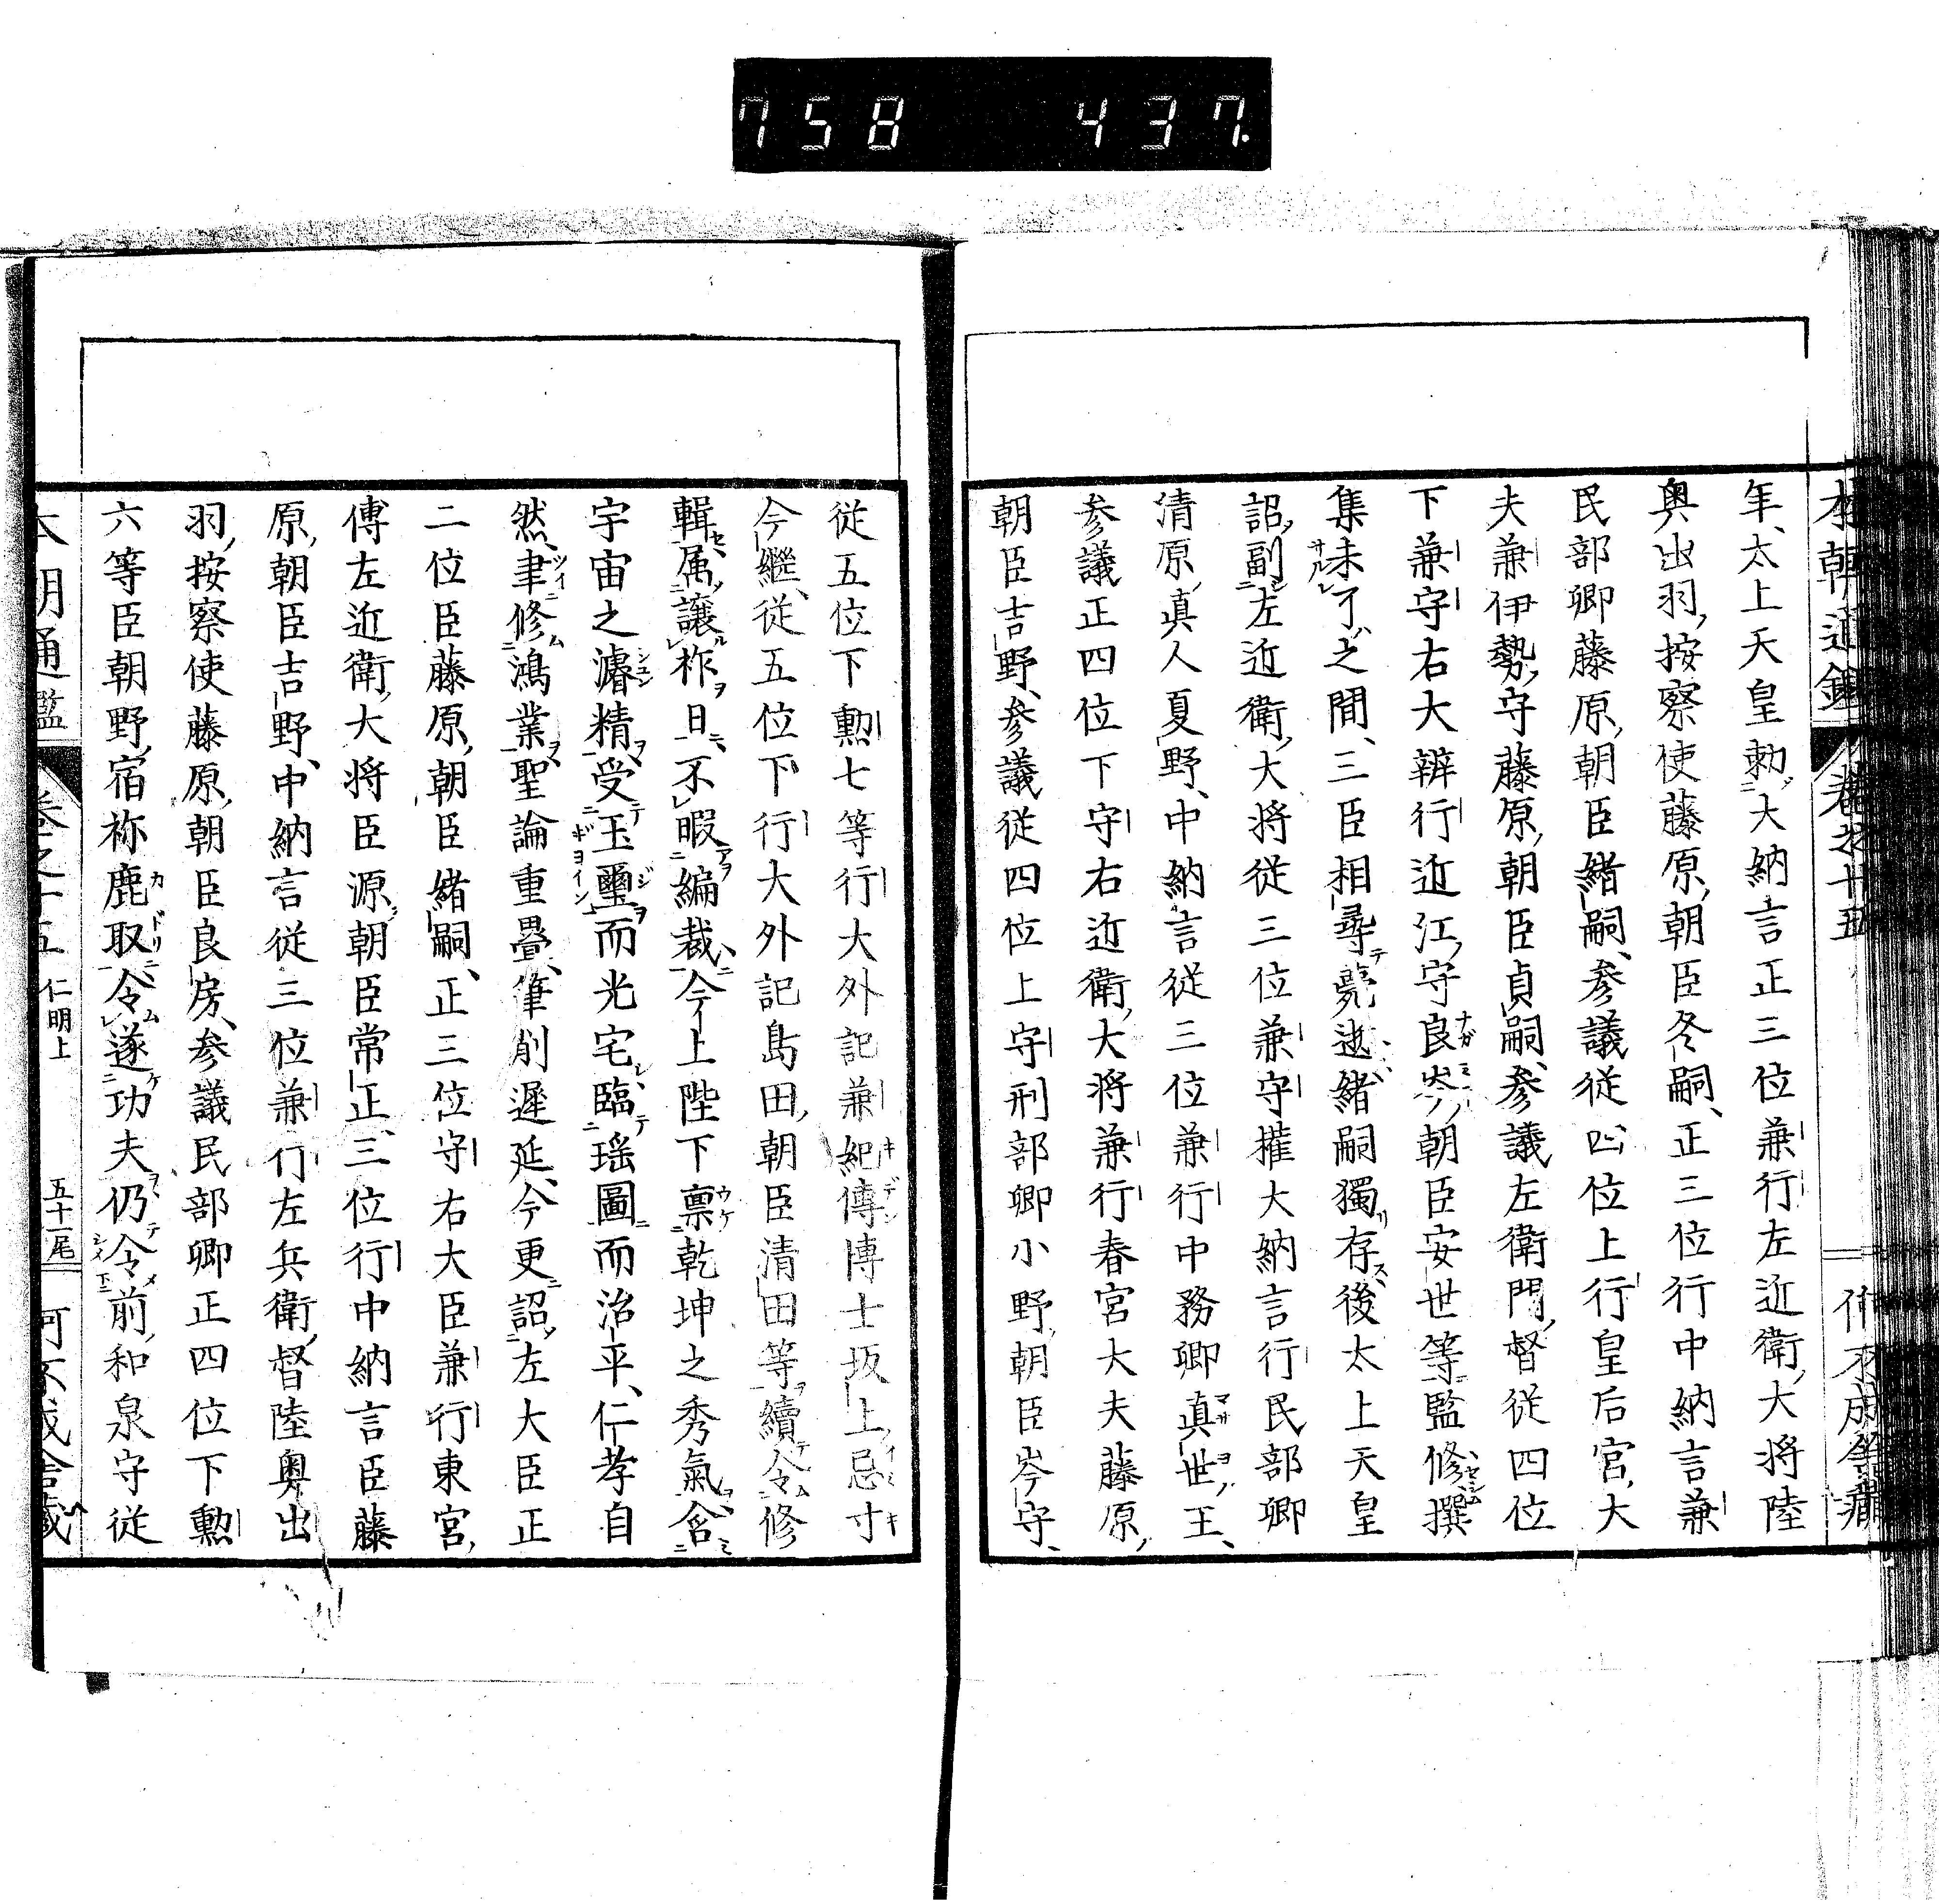 758 437
年太上天皇勅大納言正三位兼行左近衛大将陸
奥出羽按察使藤原朝臣冬嗣正三位行中納言兼
民部卿藤原朝臣緒嗣参議従四位上行皇后宮大
夫兼伊勢守藤原朝臣貞嗣参議左衛門督従四位
下兼守右大辨行近江守良岑朝臣安世等監修撰
集未了之間三臣相尋薨逝緒嗣獨存後太上天皇
詔副左近衛大将従三位兼守權大納言行民部卿
清原真人夏野中納言従三位兼行中務卿真世王
参議正四位下守右近衛大将兼行春宮大夫藤原
朝臣吉野参議従四位上守刑部卿小野朝臣岑守
従五位下勲七等行大外記兼紀傳博士坂上忌寸
今繼従五位下行大外記島田朝臣清田等續令修
輯属讓祚日不暇編裁今上陛下禀乾坤之秀氣含
宇宙之濬精受玉璽而光宅臨瑶圖而治平仁孝自
然聿修鴻業聖論重疊筆削遲延今更詔左大臣正
二位臣藤原朝臣緒嗣正三位守右大臣兼行東宮
傅左近衛大将臣源朝臣常正三位行中納言臣藤
原朝臣吉野中納言従三位兼行左兵衛督陸奥出
羽按察使藤原朝臣良房参議民部卿正四位下勲
六等臣朝野宿祢鹿取令遂功夫仍令前和泉守従
本朝通鑑 卷之十五 仁明上 五十一尾